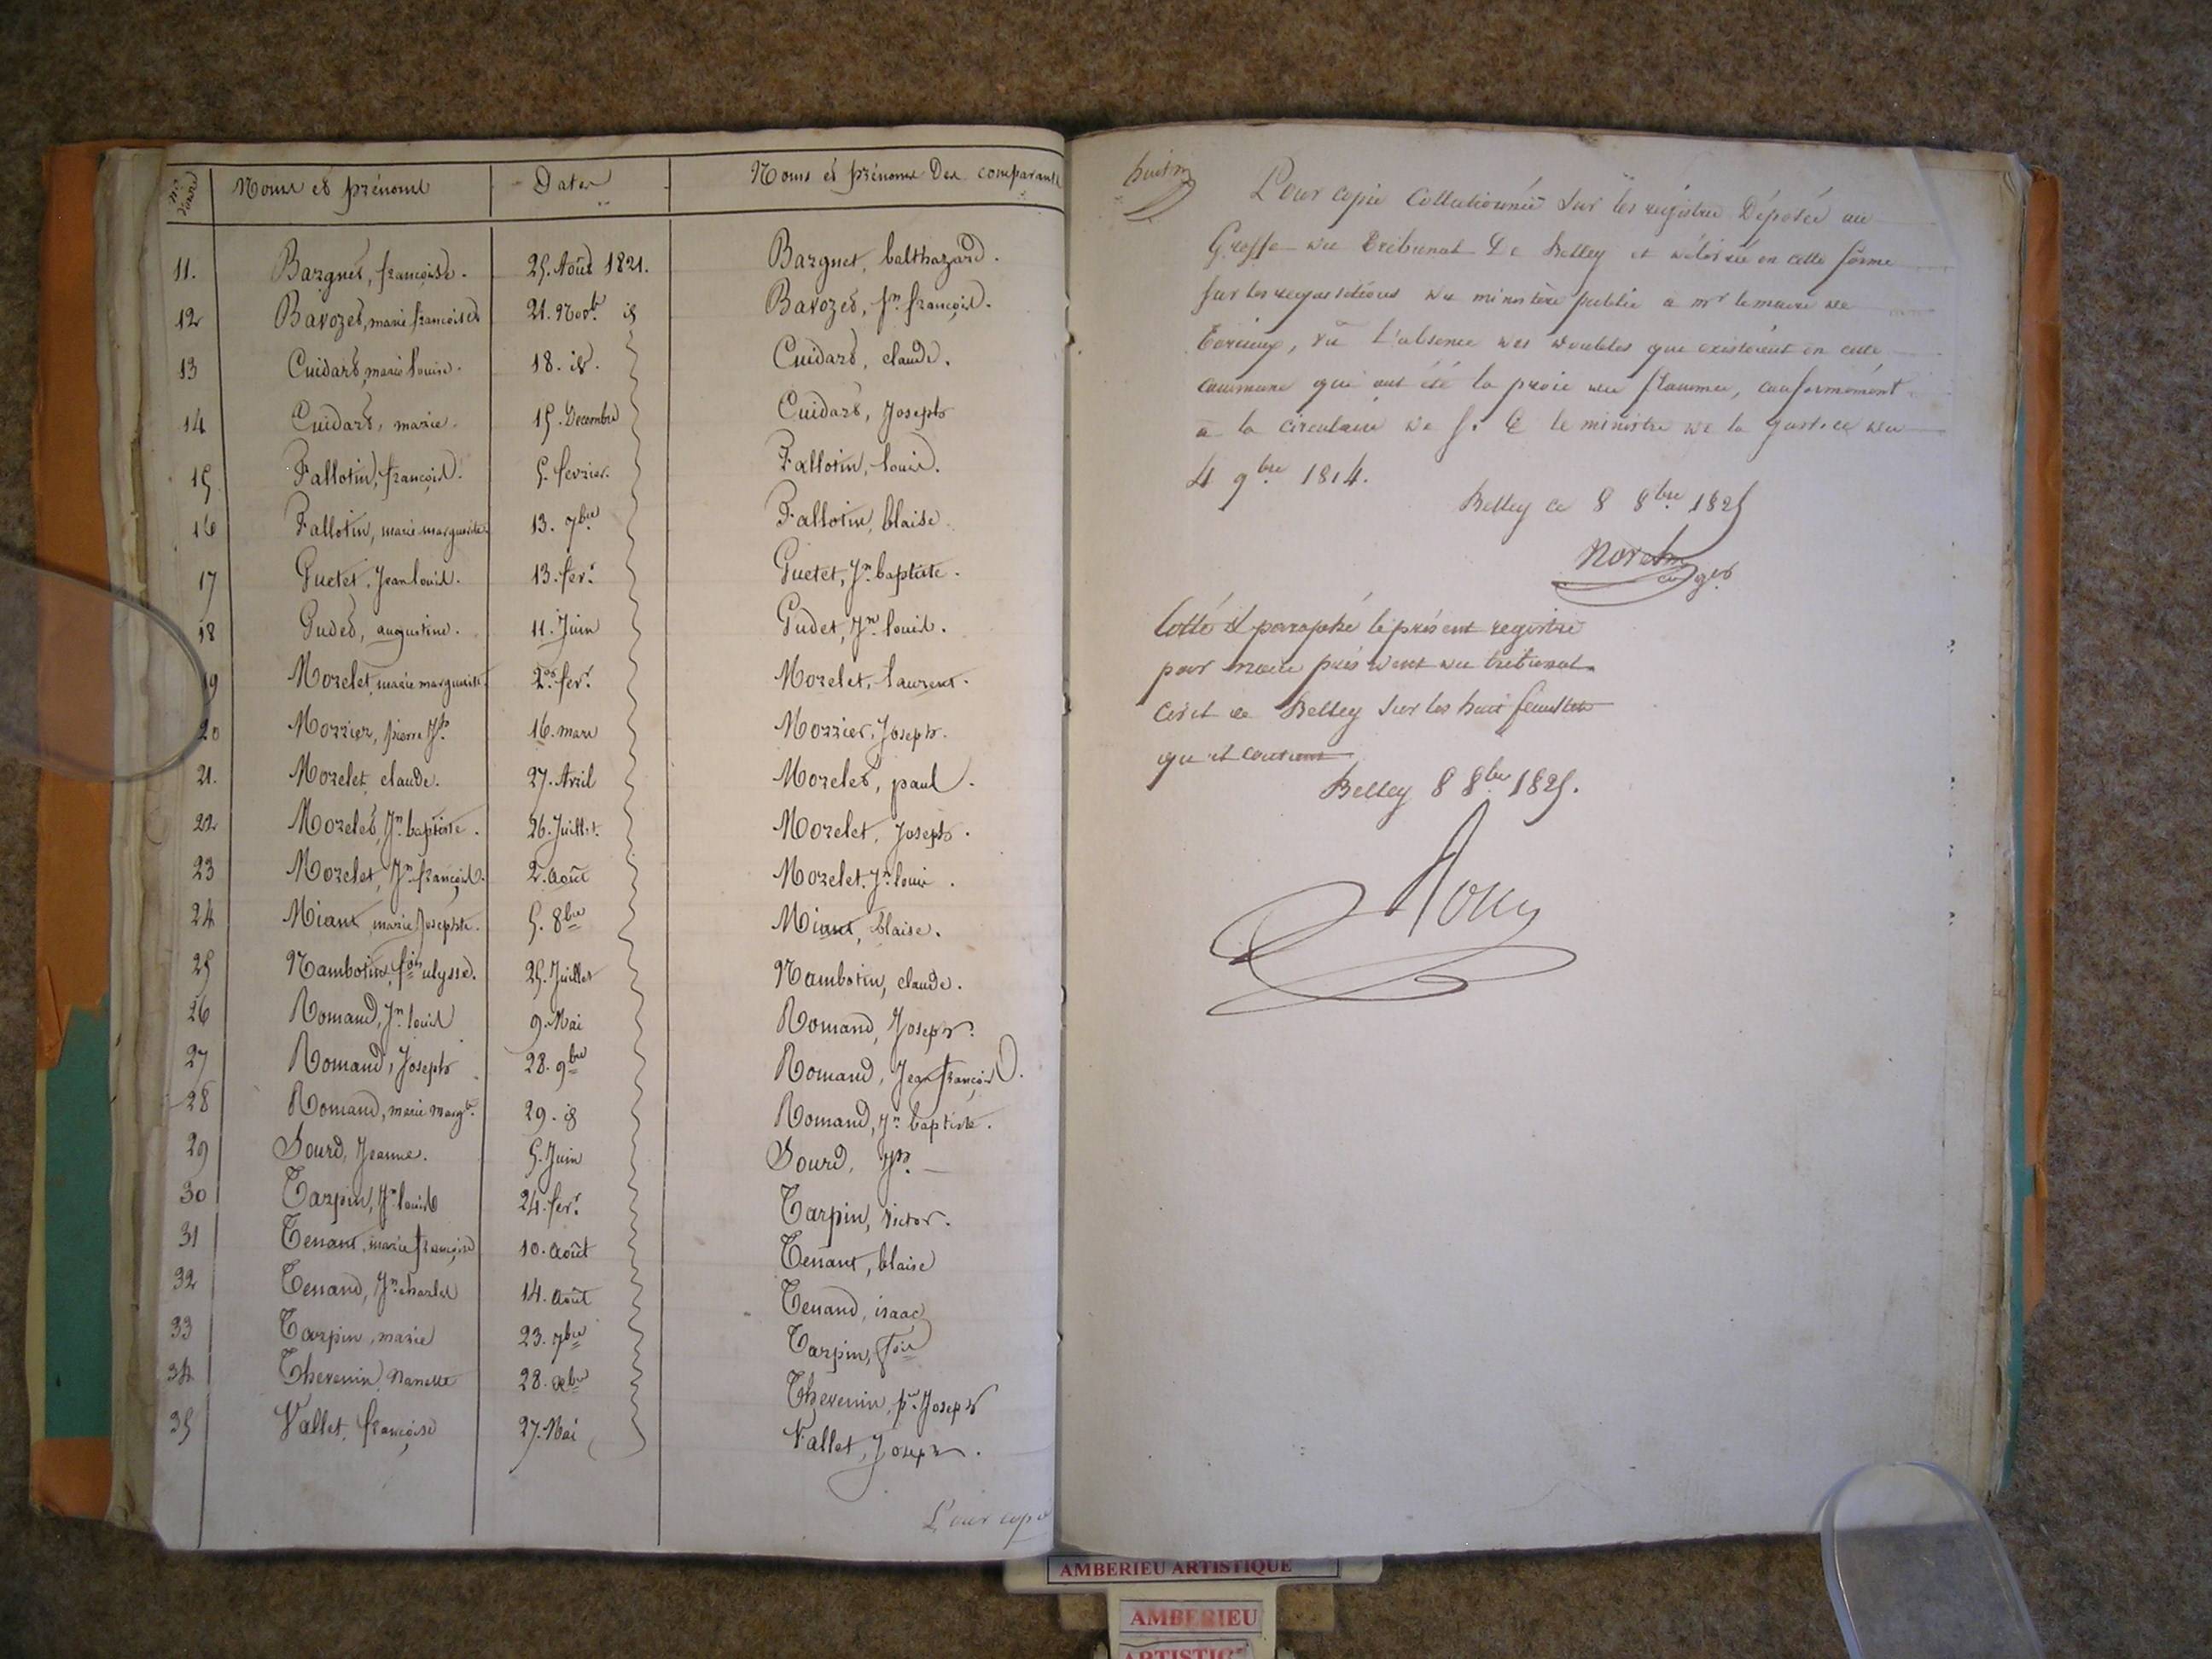 Nos d'ordre | Noms et prénoms | Dates | Noms et prénoms des comparants
11. Barguet, françoise. 25. Août 1821. Barguet, balthazard.
12 Bavozet, marie françoise 21. Novb. id Bavozet, Jn françois.
13 Cuidard, marie louise. 18. id. Cuidard, claude.
14 Cuidard, marie. 15. Decembre Cuidard, Joseph
15 Fallotin, françois. 5. fevrier. Fallotin, louis.
16 Fallotin, marie marguerite 13. 7bre Fallotin, blaise
17 Guetet, Jean louis. 13. fevr. Guetet, Jn baptiste.
18 Gudet, augustine. 11. Juin Gudet, Jn louis.
19 Morelet, marie marguerite. 2. fevr. Morelet, laurent.
20 Morrier, pierre Jh. 16. mars Morrier, Joseph.
21. Morelet, claude. 27. Avril Morelet, paul.
22 Morelet, Jn baptiste. 26. Juillet. Morelet, Joseph.
23 Morelet, Jn françois. 2. Août Morelet, Jn louis.
24 Miant, marie Josephte. 5. 8bre Miant, blaise.
25 Nambotin, fois ulysse. 25. Juillet Nambotin, claude.
26 Romand, Jn louis 9. Mai Romand, Joseph.
27 Romand, Joseph 28. 9bre Romand, Jean françois.
28 Romand, marie margte. 29. id Romand, Jn baptiste.
29 Sourd, Jeanne. 5. Juin Sourd, Jh.
30 Tarpin, Jn louis 24. fevr. Tarpin, victor.
31 Tenant, marie françoise 10. Août Tenant, blaise
32 Tenand, Jn charles 14. Août Tenand, isaac
33 Tarpin, marie 23. 7bre Tarpin, fois
34 Thevenin, Nanette 28. xbre Thevenin, pre Joseph
35 Vallet, françoise 27. Mai Vallet, Joseph.
Pour copie
Pour copie Collationnée Sur les registre Déposée au
Greffe du Tribunal De Belley et délivrée en cette forme
sur les requisitions du ministère public a mr le maire de
vu L'absence des doubles que existoient en cette
commune qui ont été la proie des flammes, conformément
a la circulaire de S. E le ministre de la Justice du
4 9bre 1814.
Belley ce 8 8bre 1825
Cotté et paraphé le présent registre
par nous président du tribunal
Civil de Belley Sur les huit feuillets
qu'il contient
Belley 8 8bre 1825.
AMBERIEU ARTISTIQUE
AMBERIEU